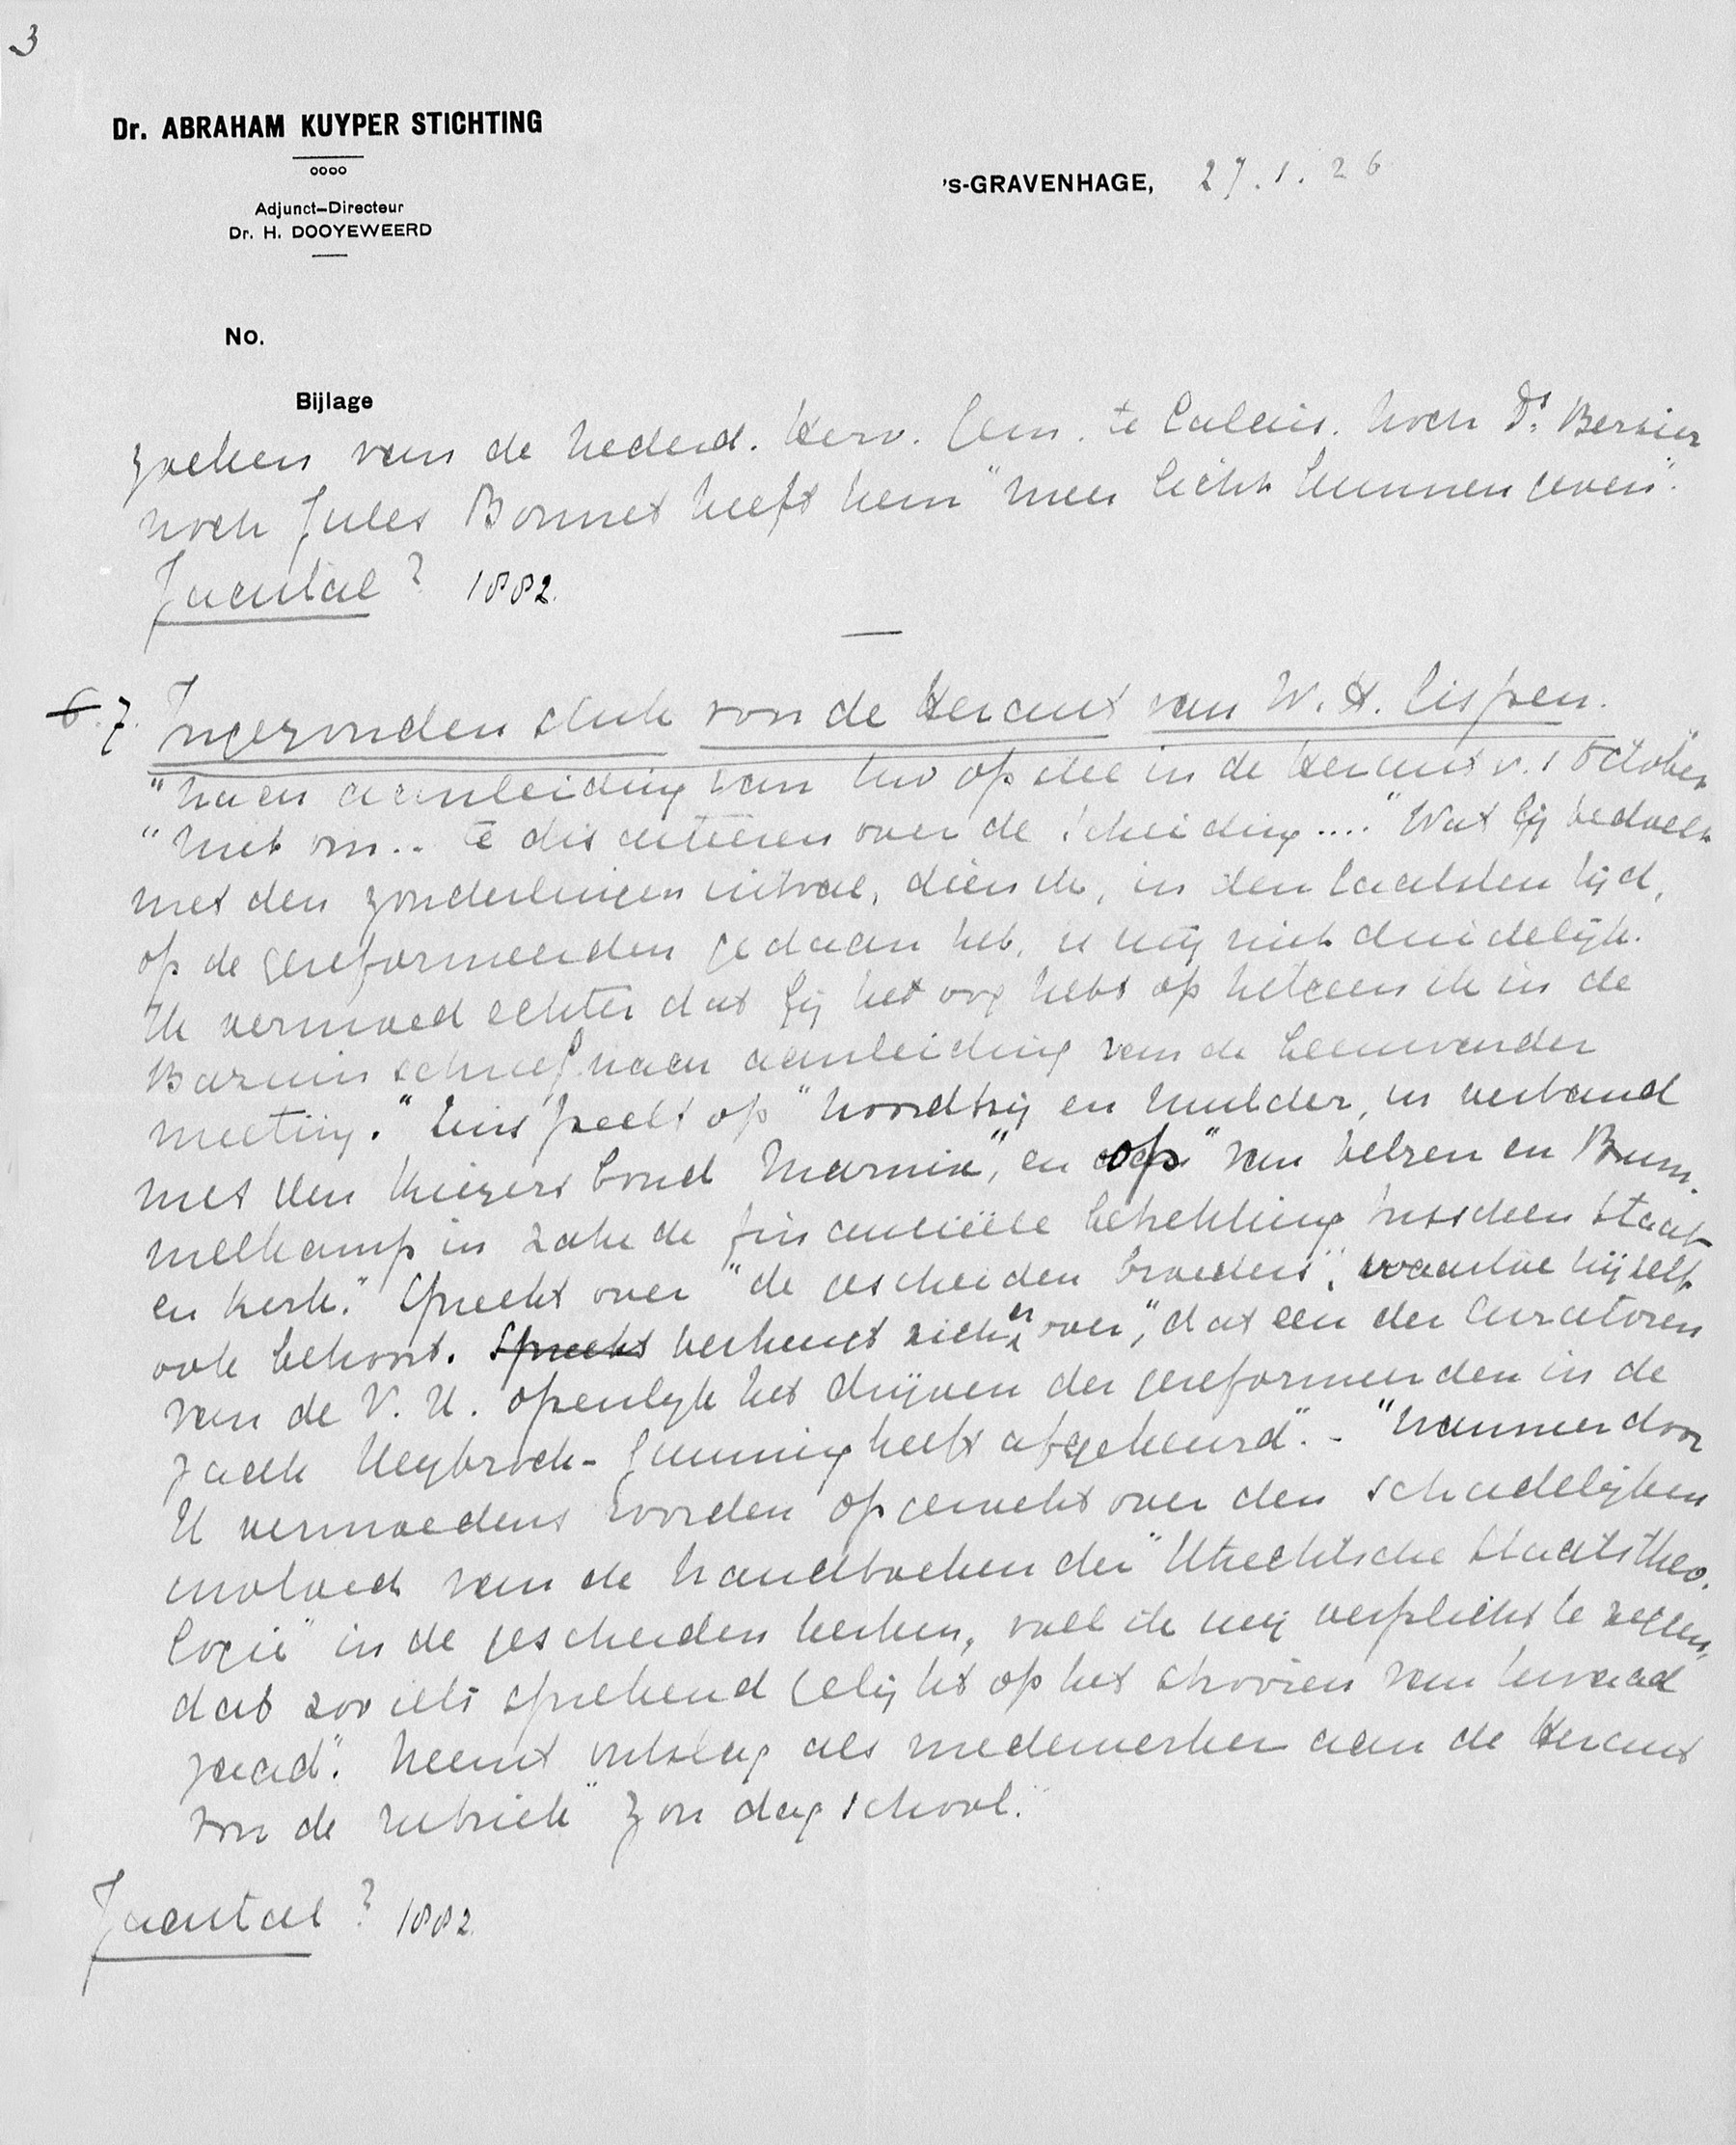 3
Dr. ABRAHAM KUYPER STICHTING
oooo
Adjunct-Directeur
Dr. H. DOOYEWEERD
's-GRAVENHAGE, 27.1.26
No.
Bijlage
zoeken van de Nederd. Herv. Gem. te Calais. Noch Ds Bersier
noch Jules Bonnet heeft hem "meer licht kunnen geven".
Jaartal? 1882.
6. 7. Ingezonden stuk voor de Heraut van W. H. Gispen.
"Naar aanleiding van Uw opstel in de Heraut v. 1 October"
"Niet om .. te discuteeren over de scheiding...." Wat Gij bedoelt
met den zonderlingen uitval, dien ik, in den laatsten tijd,
op de gereformeerden gedaan heb, is mij niet duidelijk.
Ik vermoed echter dat Gij het oog hebt op hetgeen ik in de
Bazuin schreef naar aanleiding van de Leeuwarder
meeting." Zinspeelt op "Noordtzij en Mulder, in verband
met den Kiezersbond Marnix", en op "van Velzen en Brum-
melkamp in zake de financiëele betrekking tusschen Staat
en Kerk." Spreekt over "de gescheiden broeders", waartoe hij zelf
ook behoort. Spreekt verheugt zich er over, "dat een der Curatoren
van de V. U. openlijk het drijven der gereformeerden in de
zaak Heybrock-Gunning heeft afgekeurd". - "Wanneer door
U vermoedens worden opgewekt over den schadelijken
invloed van de handboeken der "Utrechtsche Staatstheo-
logie" in de gescheiden kerken, voel ik mij verplicht te zeggen,
dat zoo iets sprekend gelijkt op het strooien van kwaad
zaad". Neemt ontslag als medewerker aan de Heraut
voor de rubriek "Zondagschool."
Jaartal? 1882.